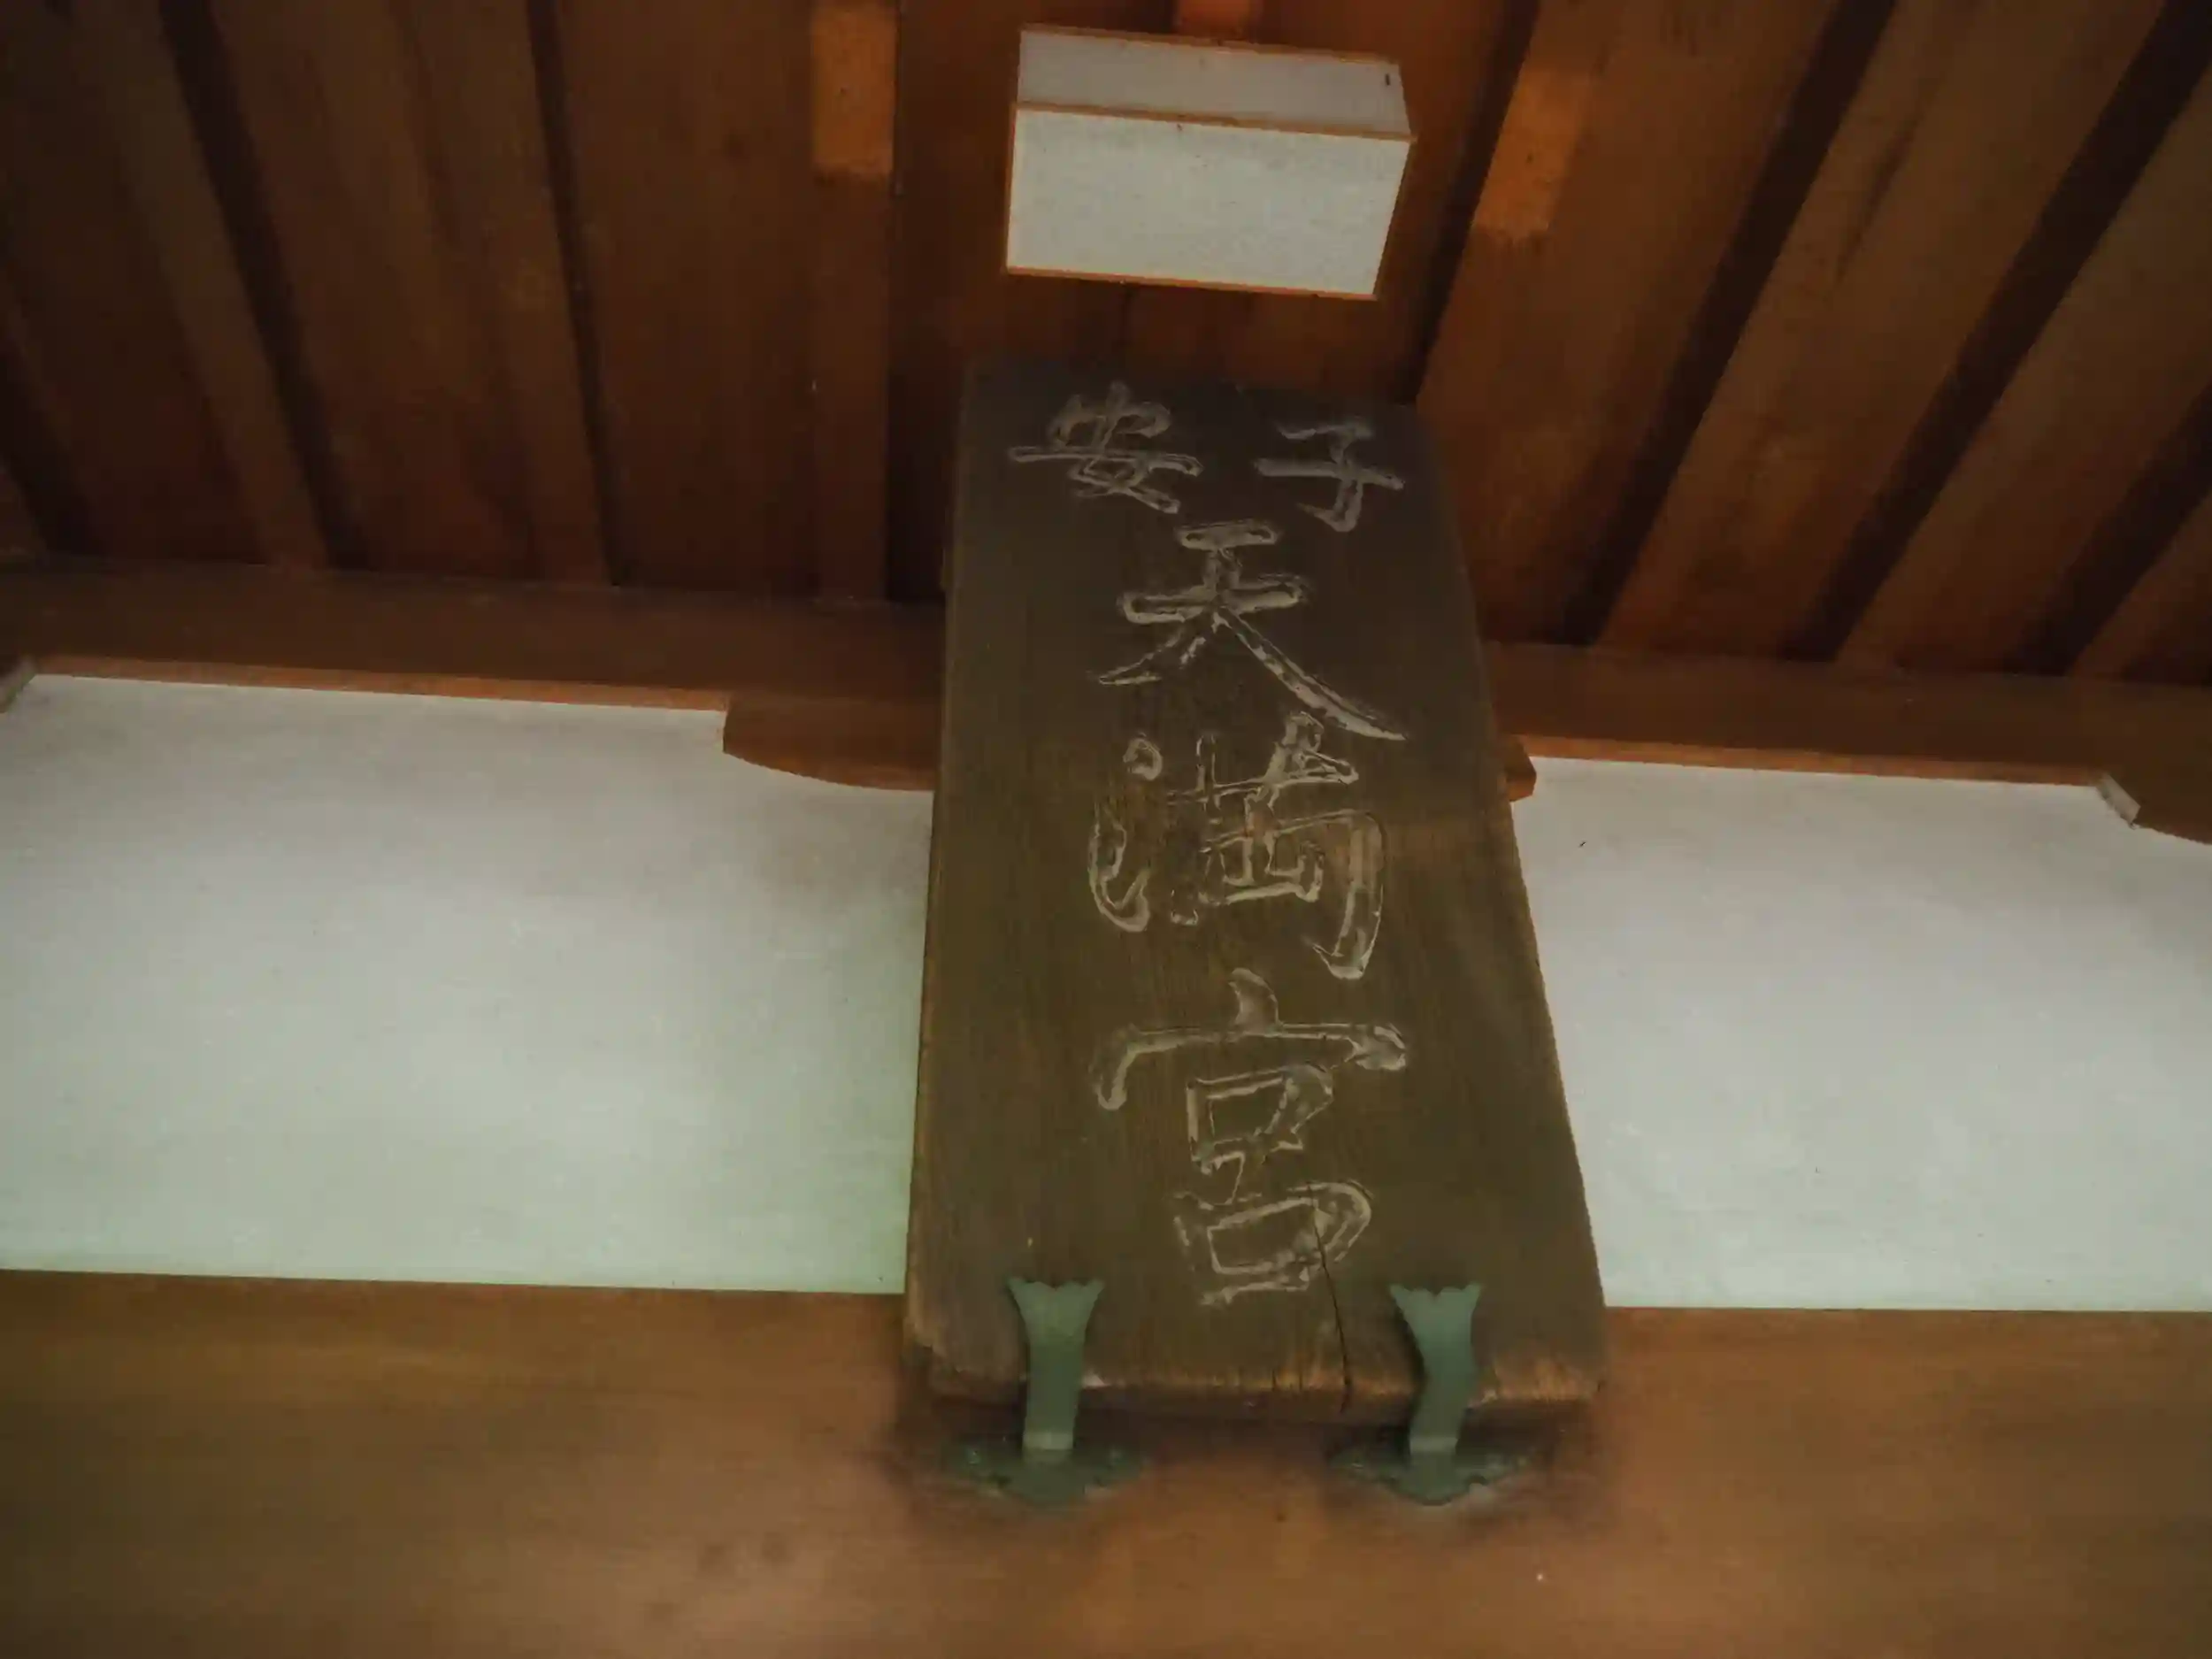 子安
天満宮